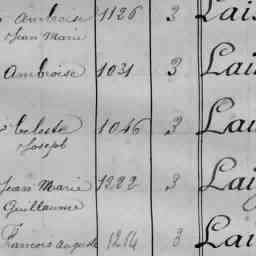 Ambroise 1126 3 Lais
Jean Marie
Ambroise 1031 3 Lai
Celeste 1046 3 Lai
Joseph
Jean Marie 1222 3 Lai
Guillaume
François Auguste 1214 3 Lai